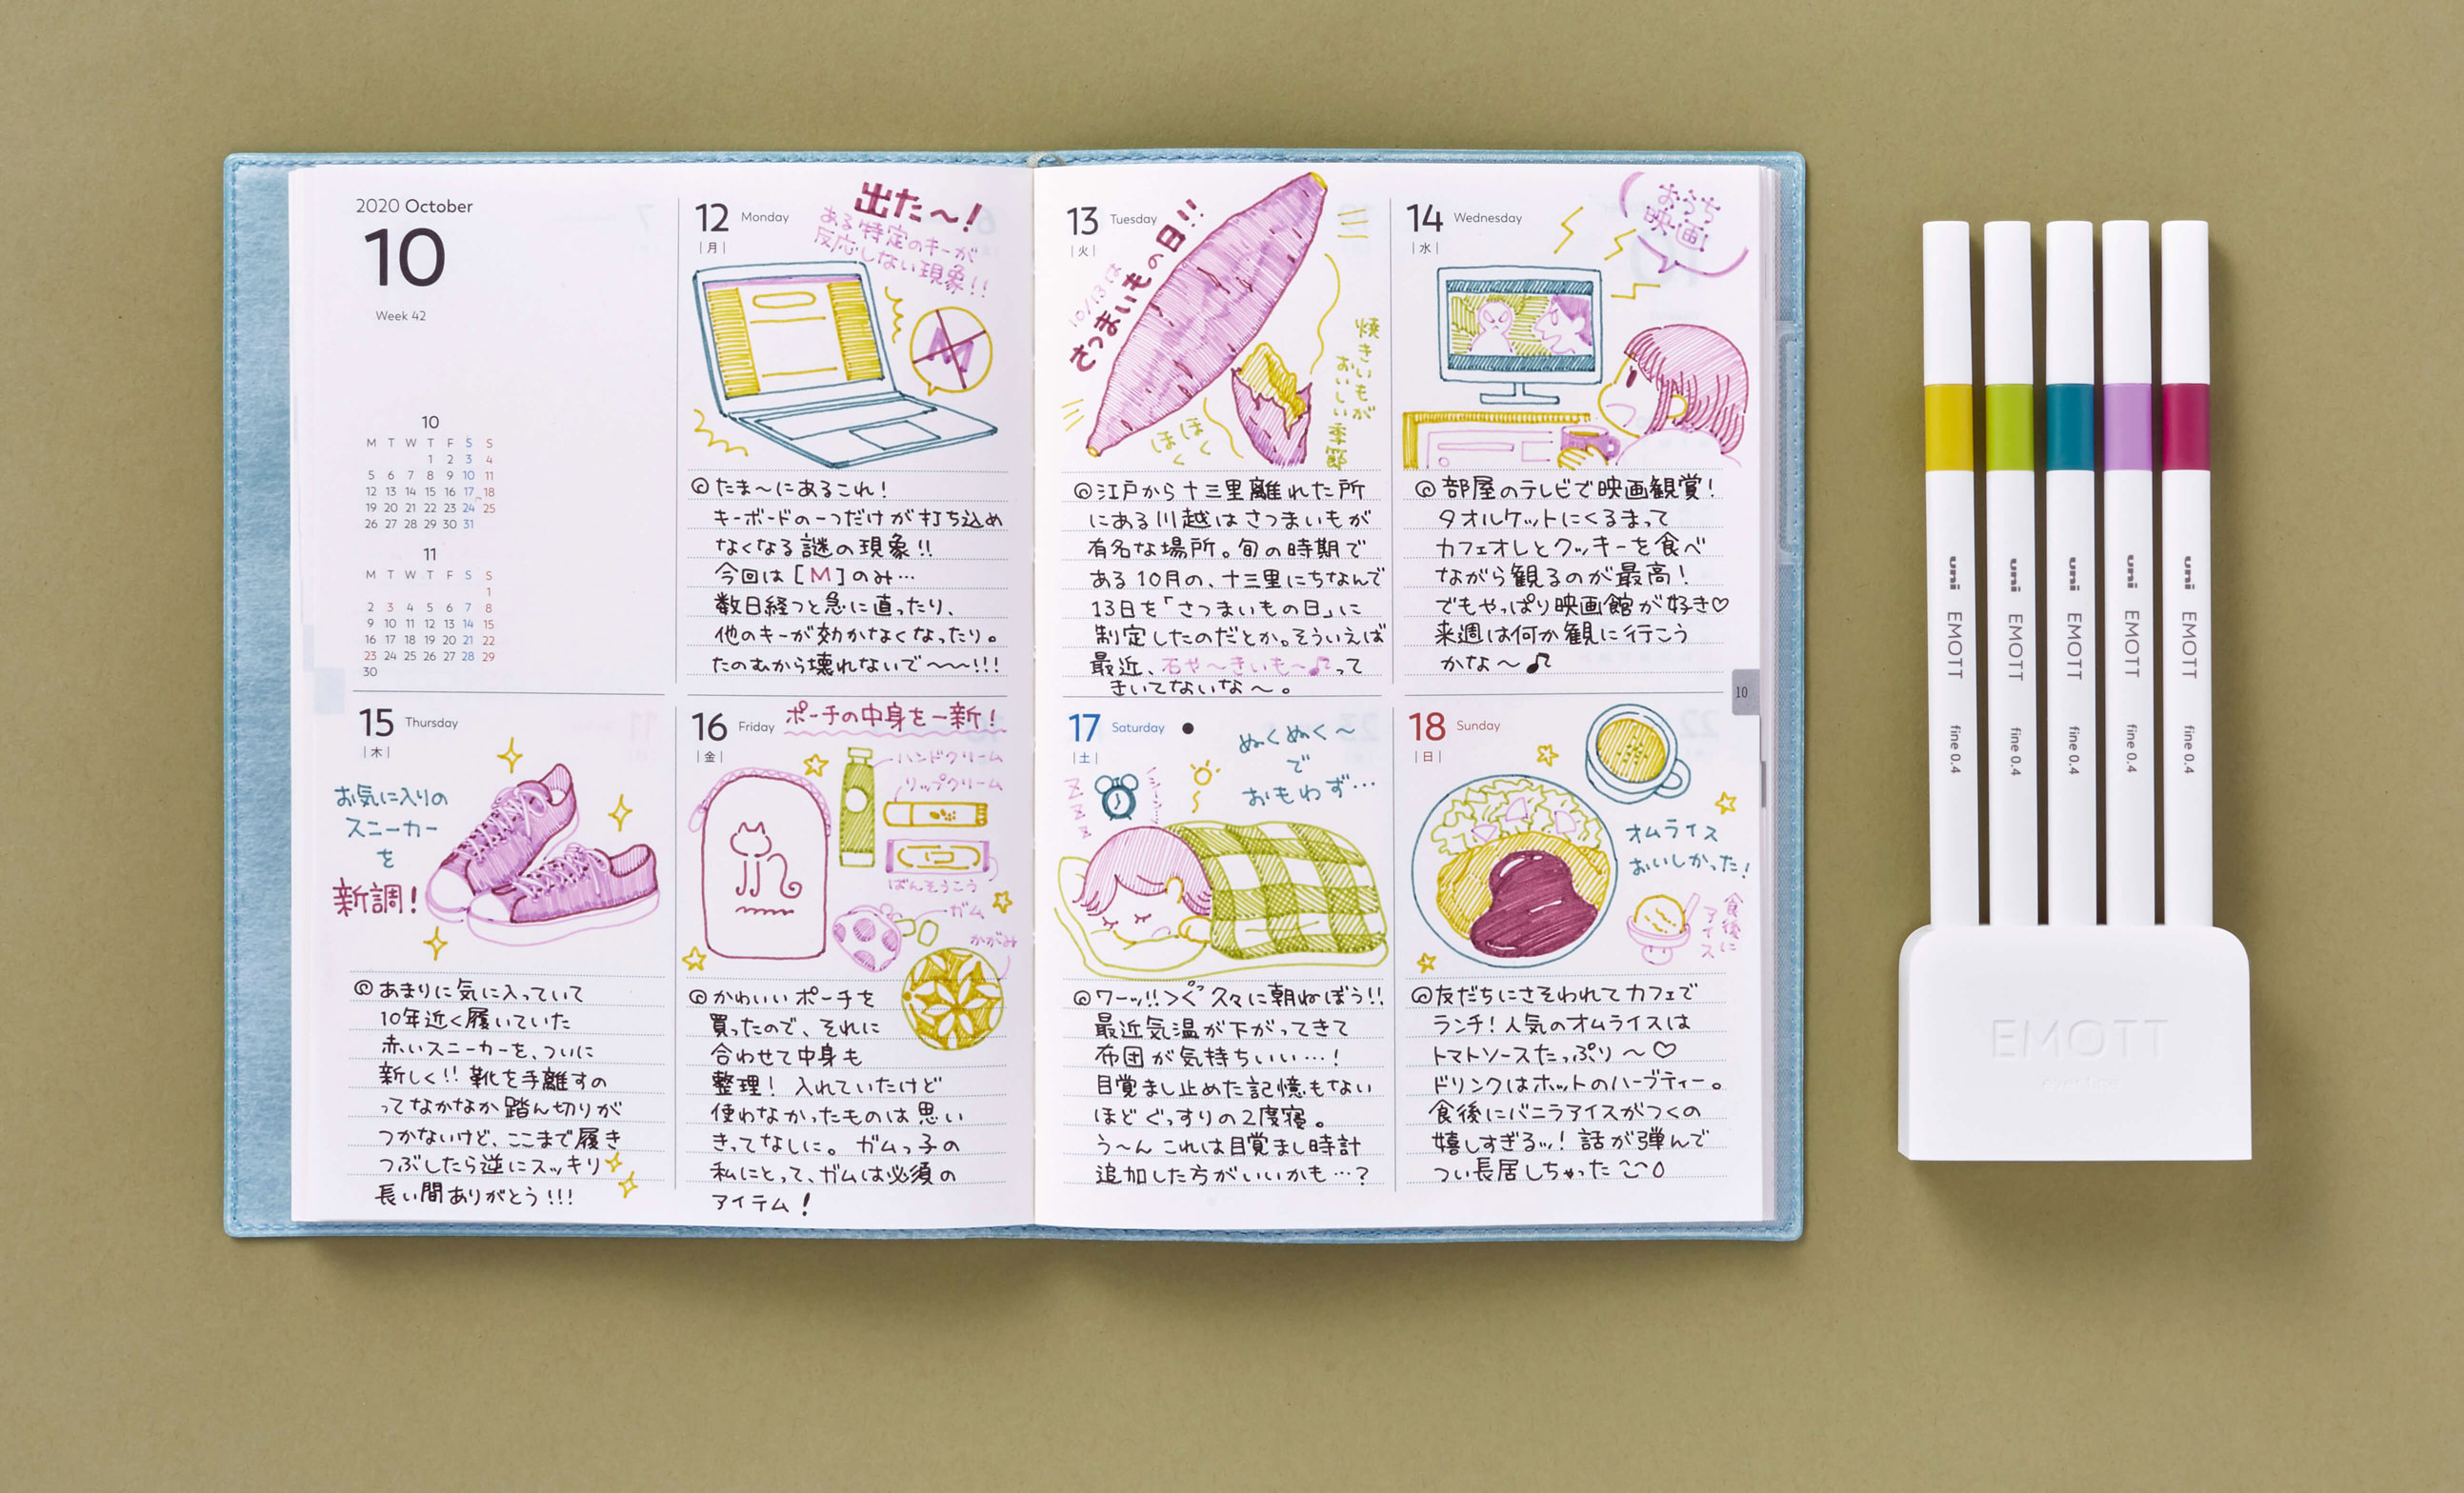 2020 October
10
Week 42
10
M T W T F S S
1 2 3 4
5 6 7 8 9 10 11
12 13 14 15 16 17 18
19 20 21 22 23 24 25
26 27 28 29 30 31
11
M T W T F S S
1
2 3 4 5 6 7 8
9 10 11 12 13 14 15
16 17 18 19 20 21 22
23 24 25 26 27 28 29
30
12 Monday
|月|
出た〜!
ある特定のキーが
反応しない現象!!
M
◎たま〜にあるこれ!
キーボードの一つだけが打ち込め
なくなる謎の現象!!
今回は[M]のみ…
数日経つと急に直ったり、
他のキーが効かなくなったり。
たのむから壊れないで〜〜!!!
13 Tuesday
|火|
10/13は
さつまいもの日!!
焼きいもが
おいしい季節
ほくほく
◎江戸から十三里離れた所
にある川越はさつまいもが
有名な場所。旬の時期で
ある10月の、十三里にちなんで
13日を「さつまいもの日」に
制定したのだとか。そういえば
最近、石や〜きいも〜♫って
きいてないな〜。
14 Wednesday
|水|
おうち
映画
◎部屋のテレビで映画観賞!
タオルケットにくるまって
カフェオレとクッキーを食べ
ながら観るのが最高!
でもやっぱり映画館が好き♡
来週は何か観に行こう
かな〜♫
10
15 Thursday
|木|
お気に入りの
スニーカー
を
新調!
◎あまりに気に入っていて
10年近く履いていた
赤いスニーカーを、ついに
新しく!! 靴を手離すの
ってなかなか踏ん切りが
つかないけど、ここまで履き
つぶしたら逆にスッキリ
長い間ありがとう!!!
16 Friday
|金|
ポーチの中身を一新!
ハンドクリーム
リップクリーム
ばんそうこう
ガム
かがみ
◎かわいいポーチを
買ったので、それに
合わせて中身も
整理! 入れていたけど
使わなかったものは思い
きってなしに。ガムっ子の
私にとって、ガムは必須の
アイテム!
17 Saturday ●
|土|
ZZZZ
ぬくぬく〜
で
おもわず…
◎ワーッ!! 久々に朝ねぼう!!
最近気温が下がってきて
布団が気持ちいい…!
目覚まし止めた記憶もない
ほどぐっすりの2度寝。
う〜んこれは目覚まし時計
追加した方がいいかも…?
18 Sunday
|日|
オムライス
おいしかった!
食後に
アイス
◎友だちにさそわれてカフェで
ランチ!人気のオムライスは
トマトソースたっぷり〜♡
ドリンクはホットのハーブティー。
食後にバニラアイスがつくの
嬉しすぎるッ! 話が弾んで
つい長居しちゃった
uni EMOTT fine 0.4
uni EMOTT fine 0.4
uni EMOTT fine 0.4
uni EMOTT fine 0.4
uni EMOTT fine 0.4
EMOTT